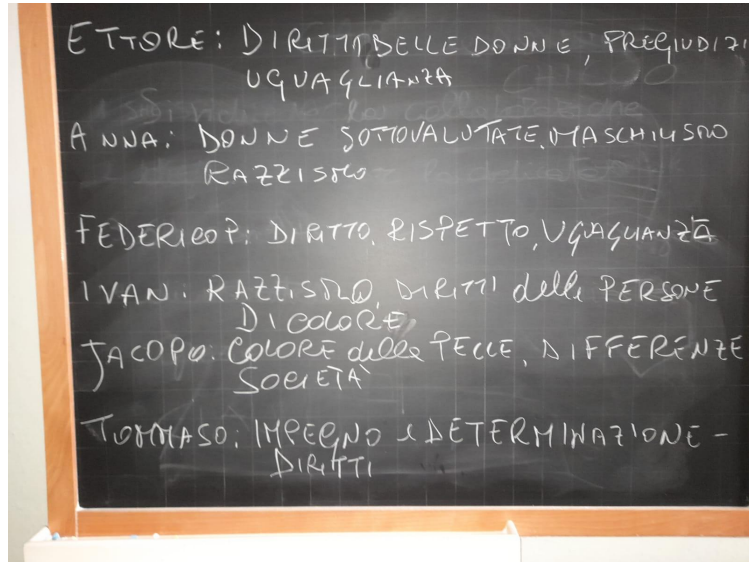 ETTORE: DIRITTI DELLE DONNE, PREGIUDIZI
UGUAGLIANZA
ANNA: DONNE SOTTOVALUTATE, MASCHILISMO
RAZZISMO
FEDERICO P: DIRITTO, RISPETTO, UGUAGLIANZA
IVAN: RAZZISMO, DIRITTI delle PERSONE
DI COLORE
JACOPO: COLORE della PELLE, DIFFERENZE
SOCIETÀ
TOMMASO: IMPEGNO e DETERMINAZIONE -
DIRITTI